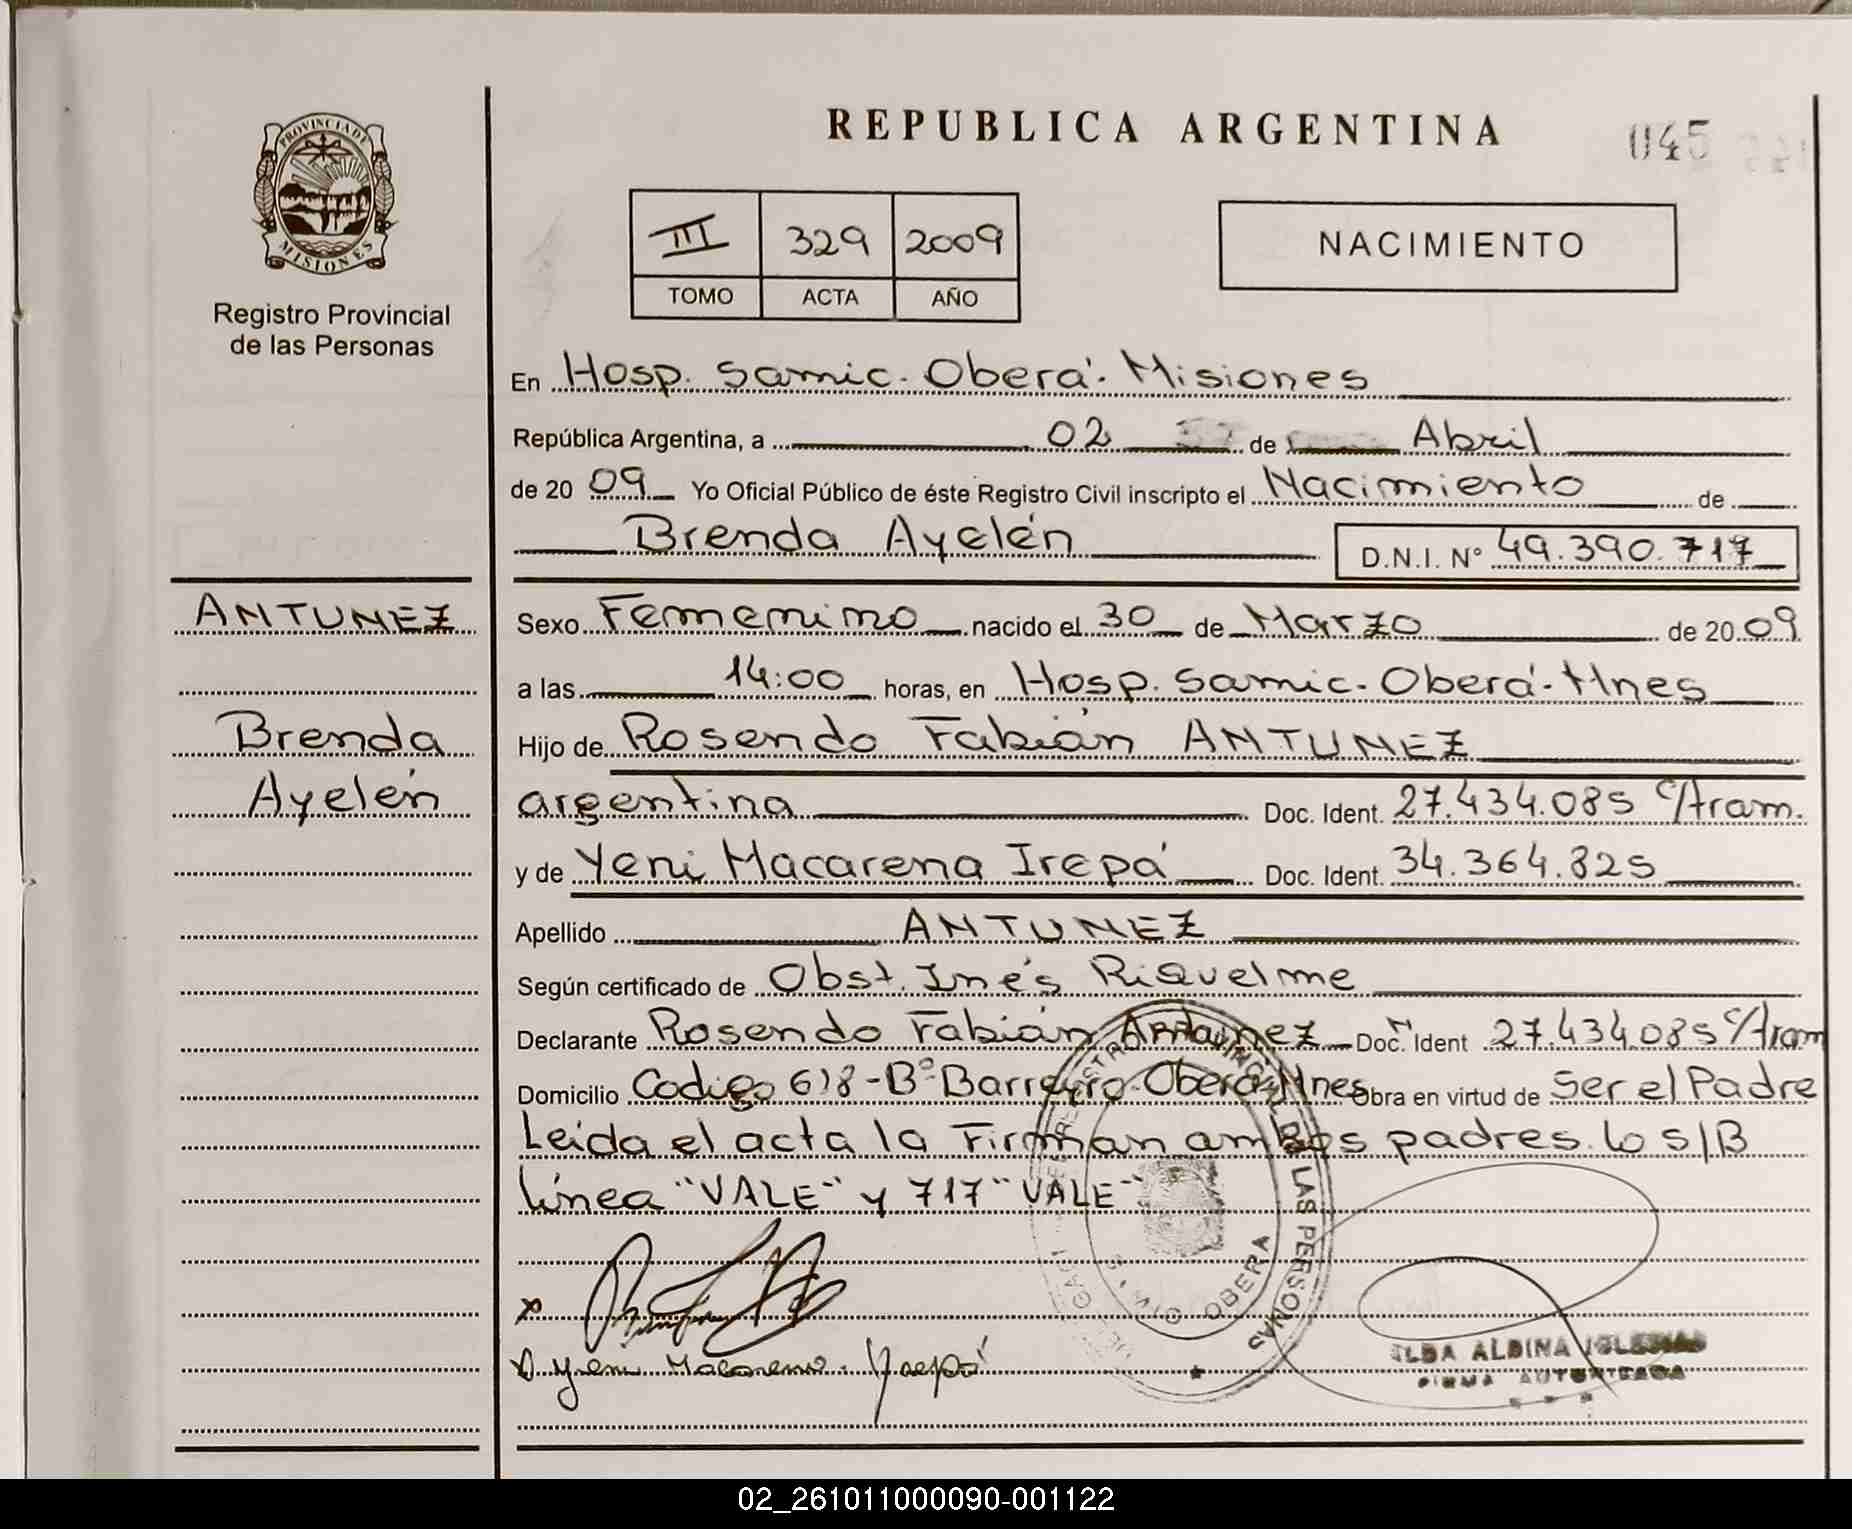 REPUBLICA ARGENTINA
045
PROVINCIA DE
MISIONES
Registro Provincial
de las Personas
III 329 2009
TOMO ACTA AÑO
NACIMIENTO
En Hosp. Samic. Oberá. Misiones
República Argentina, a 02 de Abril
de 20 09 Yo Oficial Público de éste Registro Civil inscripto el Nacimiento de
Brenda Ayelén D.N.I. N° 49.390.717
ANTUNEZ
Brenda
Ayelén
Sexo Femenino nacido el 30 de Marzo de 20 09
a las 14:00 horas, en Hosp. Samic. Oberá-Mnes
Hijo de Rosendo Fabián ANTUNEZ
argentina Doc. Ident. 27.434.085 C/Aram.
y de Yeni Macarena Irepá Doc. Ident. 34.364.825
Apellido ANTUNEZ
Según certificado de Obst. Inés Riquelme
Declarante Rosendo Fabián Antunez Doc. Ident 27.434.085 C/Aram
Domicilio Codigo 618-B° Barreyro-Oberá-Mnes Obra en virtud de Ser el Padre
Leída el acta la Firman ambos padres. lo S/B
línea "VALE" y 717 "VALE"
REGISTRO PROVINCIAL DE LAS PERSONAS
OBERA
Yeni Macarena Irepá
ILDA ALDINA IGLESIAS
FIRMA AUTORIZADA
02_261011000090-001122